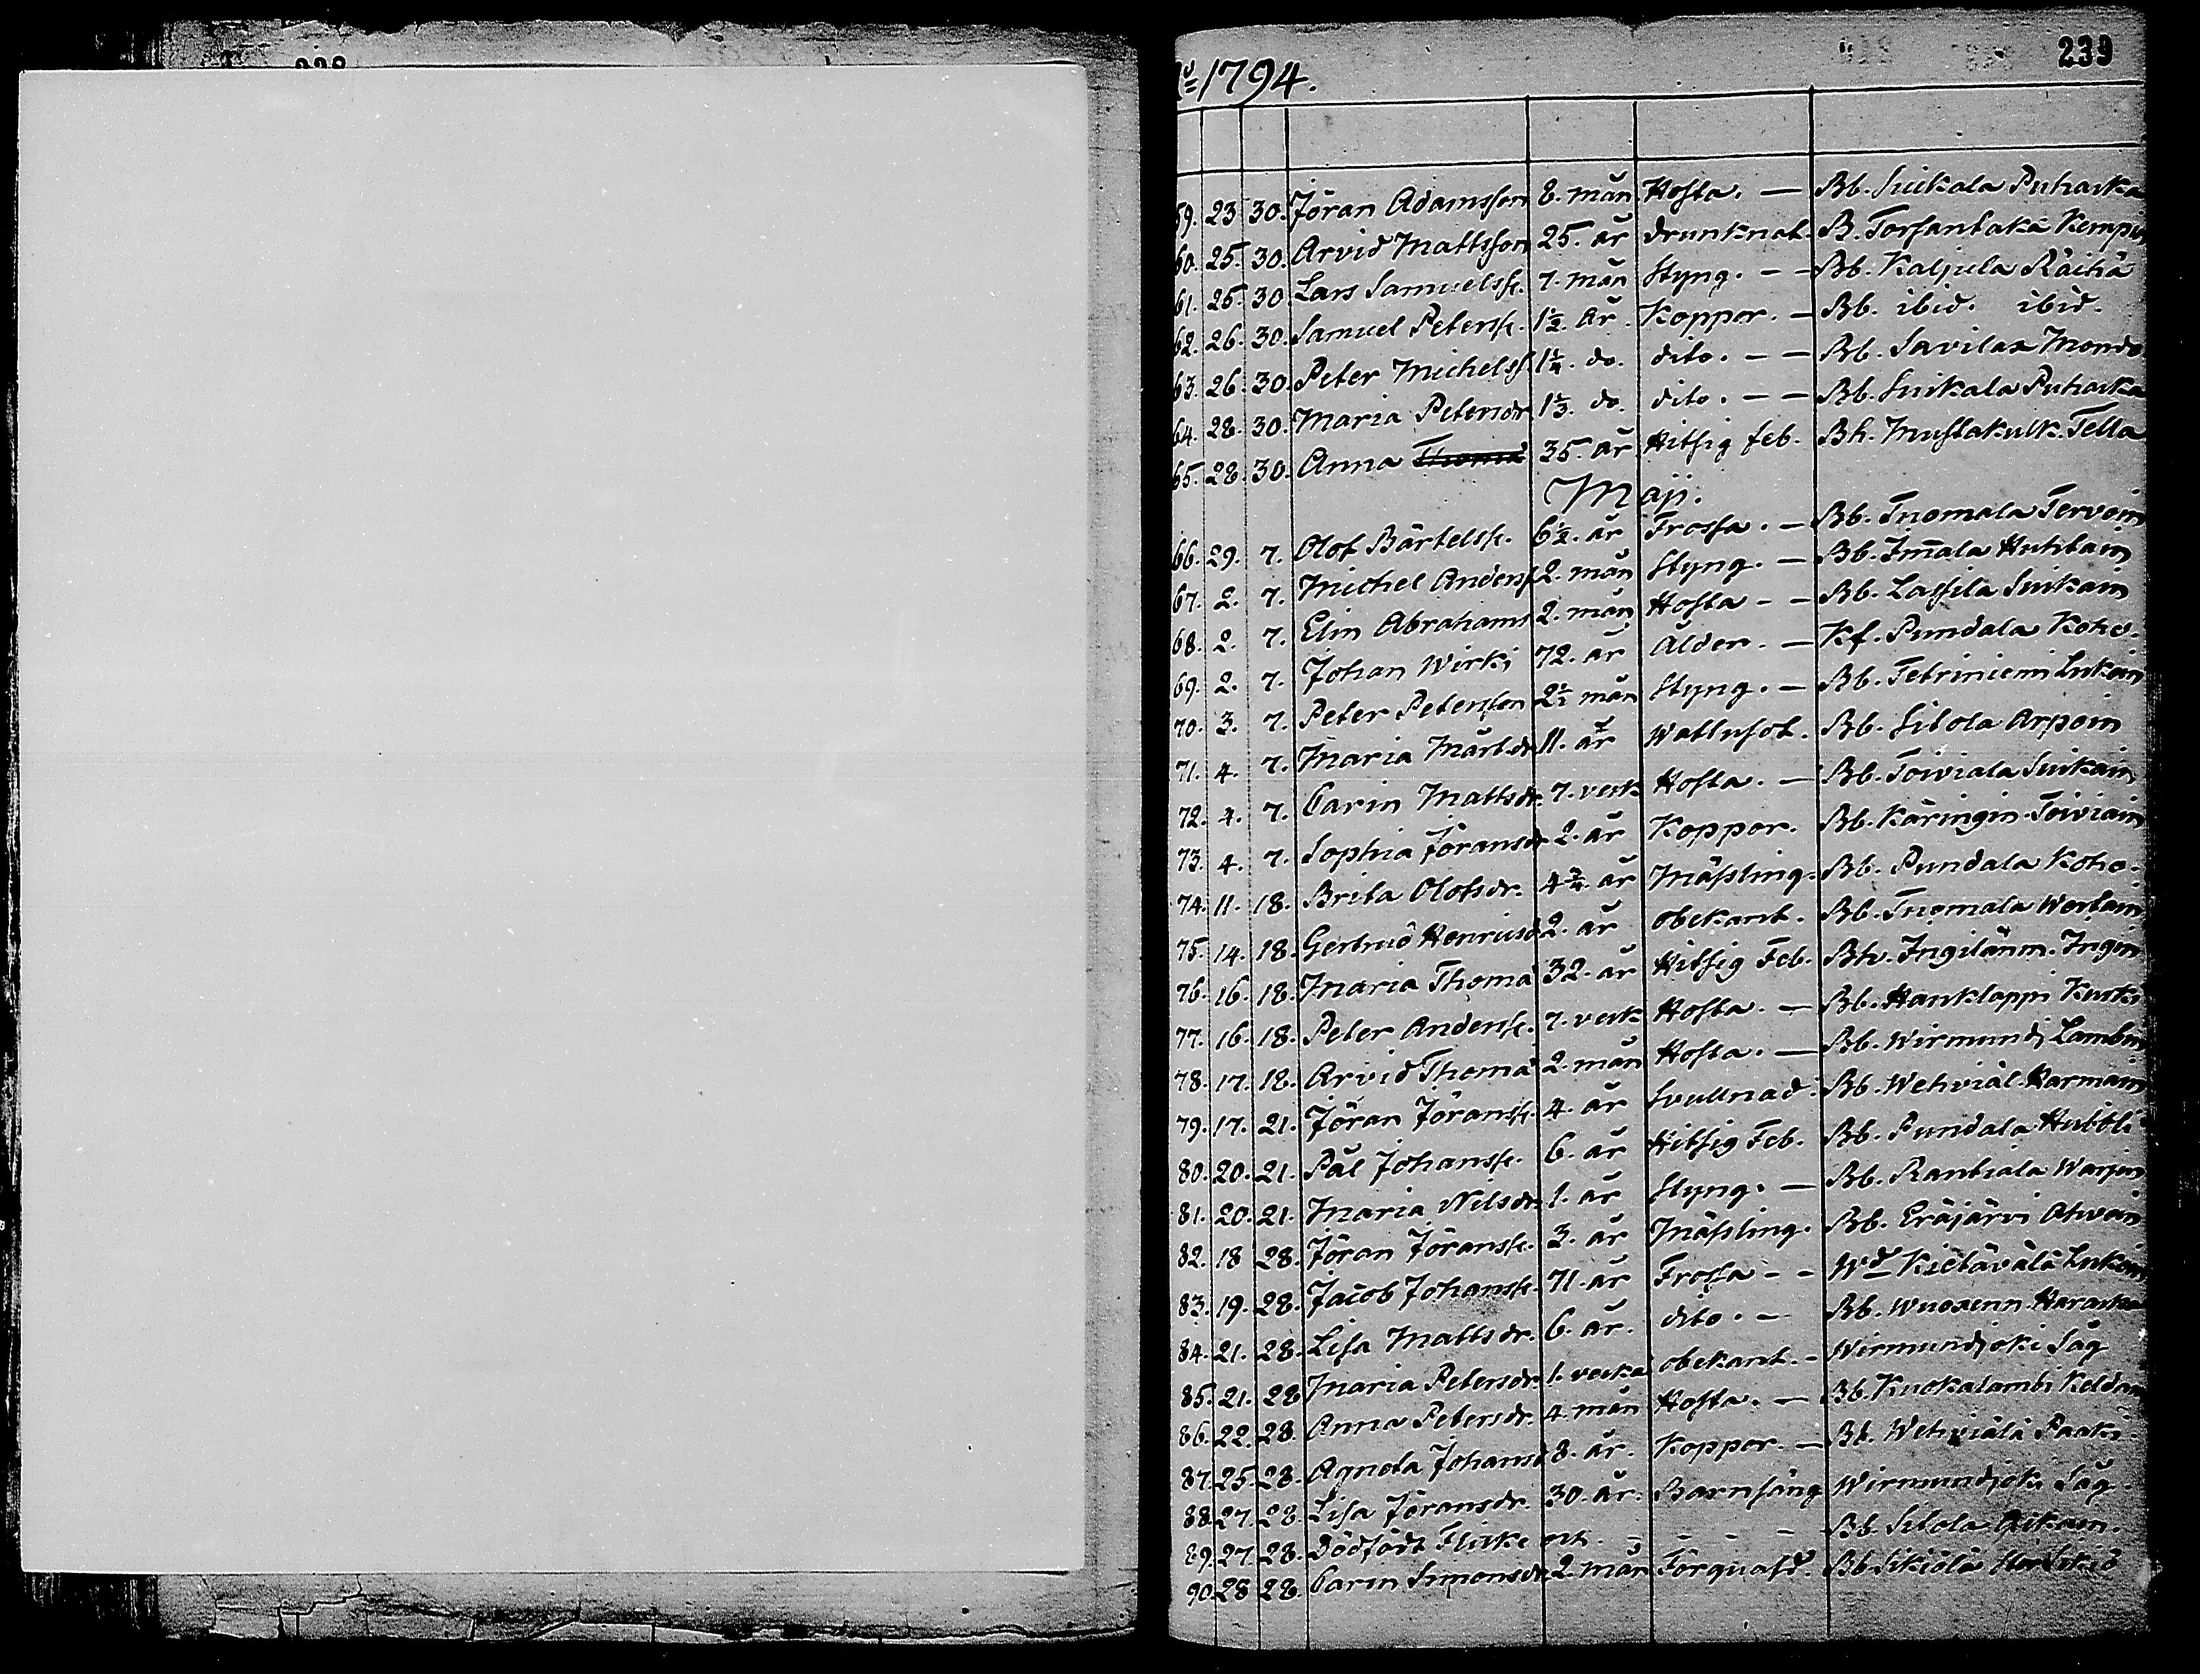 239
1794.
59. 23 30. Jöran Adamsson 8. mån Hosta. — Bb. Suikala Puhaska
60. 25. 30. Arvid Mattsson 25. år drunknat. B. Torsantaka Kemp
61. 25 30 Lars Samuelss. 7. mån Styng. — Bb. Kaljula Räihä
62. 26. 30. Samuel Peterss. 1½ år. Koppor. — Bb. ibid. ibid.
63. 26. 30. Peter Michelss. 1¼. do. dito. — — Bb. Savilax Mondo
64. 28. 30. Maria Petersdr 1⅓. do. dito. — — Bb. Suikala Puhaska
65. 28. 30. Anna Thoma 35. år Hitsig feb. Bh. Mustakulk. Tella
Maji.
66. 29. 7. Olof Bärtelss. 6½. år Frossa. — Bb. Tuomala Tervoin
67. 2. 7. Michel Anderss 2. mån Styng. — Bb. Im̄ala Huhtain
68. 2. 7. Elin Abrahams 2. mån Hosta — — Bb. Lassila Suikain
69. 2. 7. Johan Wirki 72. år Ålder. — Kf. Pundala Koho.
70. 3. 7. Peter Petersson 2½ mån Styng. — Bb. Tetriniemi Lukain
71. 4. 7. Maria Märt.dr 11. år Wattusot. Bb. Sitola Arpoin
72. 4. 7. Carin Mattsdr. 7. veck Hosta. — Bb. Toiviala Suikain
73. 4. 7. Sophia Jöransdr 2. år Koppor. Bb. Käringin. Toiviain
74. 11. 18. Brita Olofsdr. 4¾. år Mässling. Bb. Pundala Koho.
75. 14. 18. Gertrud Henricsd 2. år obekant. Bb. Tuomala Wertain
76. 16. 18. Maria Thoma 32. år Hitsig Feb. Bh. Ingilänm. Ingin
77. 16. 18. Peter Anderss. 7. veck Hosta. — Bb. Hanklappi Kurki
78. 17. 18. Arvid Thoma 2. mån Hosta. — Bb. Wirmundj Lambin
79. 17. 21. Jöran Jöranss. 4. år Svullnad. Bb. Wehviäl. Harmain
80. 20. 21. Pål Johanss. 6. år Hitsig Feb. Bb. Pundala Hubtli
81. 20. 21. Maria Nilsdr 1. år Styng. — Bb. Rantiala Warjin
82. 18 28. Jöran Jöranss. 3. år Mässling. Bb. Eräjärvi Ahvain
83. 19. 28. Jacob Johanss. 71. år Frossa — — Wd Kietäväla Lukain
84. 21. 28. Lisa Mattsdr. 6. år. dito. — Bb. Wuoxenn. Haraska
85. 21. 28 Maria Petersdr. 1. vecka obekant. — Wirmundjoki Såg
86. 22. 28. Anna Petersdr. 4. mån Hosta. — Bb. Kuokalambi Keldan
87. 25. 28. Agneta Johansd 8. år. Koppor. — Bb. Wehviälä Paaki
88. 27. 28. Lisa Jöransdr. 30. år. Barnsäng Wirmundjoki Såg
89. 27. 28. Dödfödt Flicke — Bb. Sitola
90. 28 28. Carin Simonsdr. 2 mån Förquafd. Bb. Sikiölä